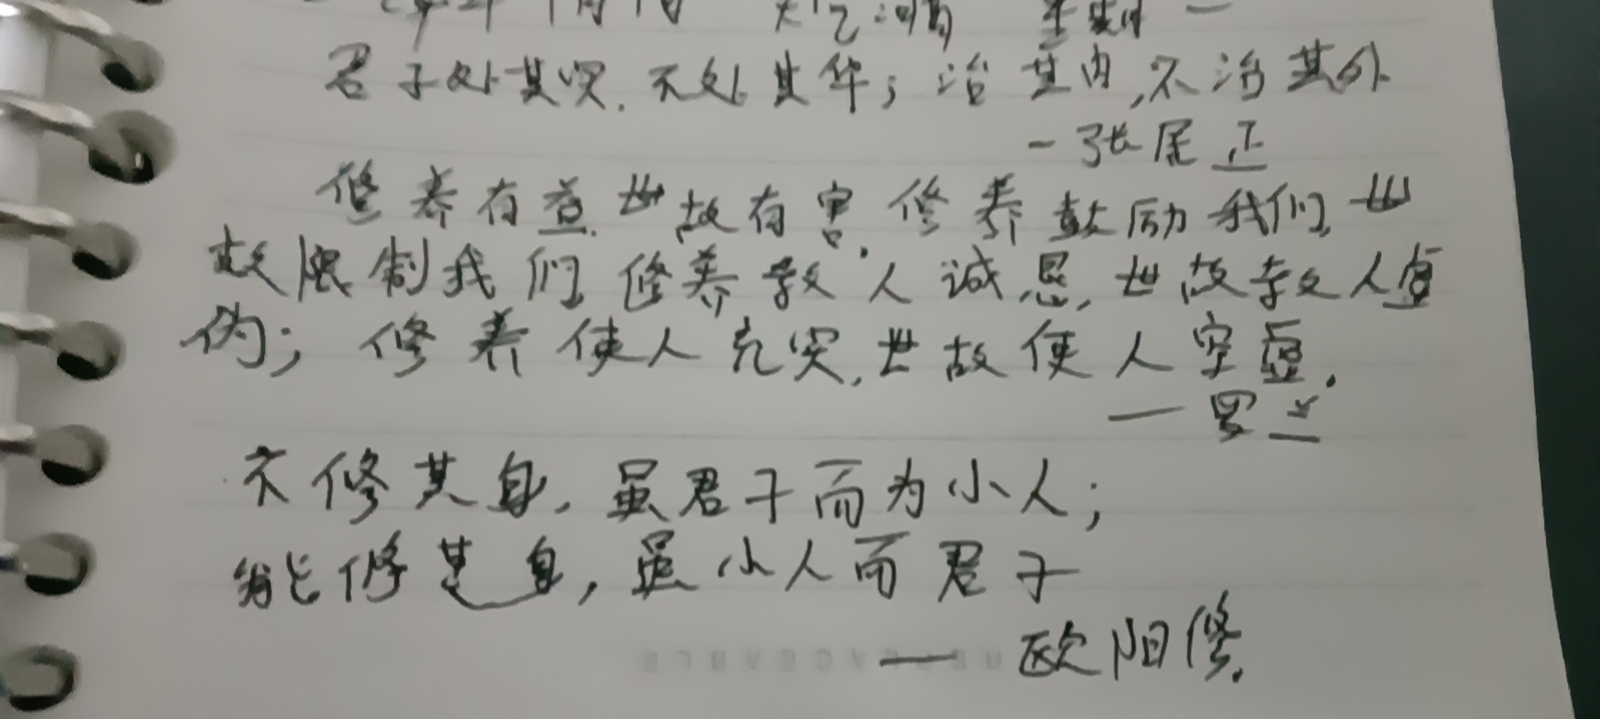 君子处其实,不处其华;治其内,不治其外
-张居正
修养有益,世故有害,修养鼓励我们,世
故限制我们,修养教人诚恳,世故教人虚
伪;修养使人充实,世故使人空虚.
—罗兰
不修其身,虽君子而为小人;
能修其身,虽小人而君子
—欧阳修.